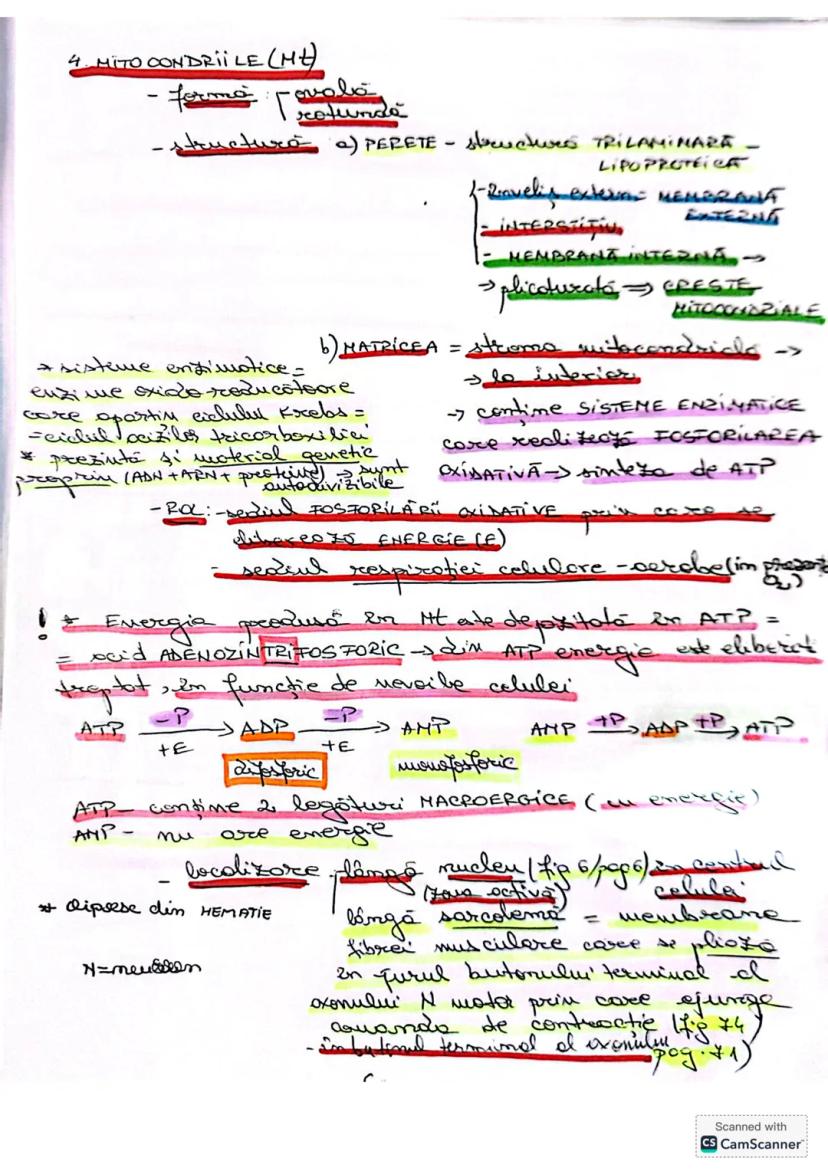 4. MITOCONDRIILE (Mt)
- formă ovală
rotundă
- structură a) PERETE - structură TRILAMINARĂ -
LIPOPROTEICĂ
- înveliș extern = MEMBRANĂ
EXTERNĂ
- INTERSTIȚIU
- MEMBRANĂ INTERNĂ →
→ plicaturată ⇒ CRESTE
MITOCONDRIALE
b) MATRICEA = stroma mitocondrială →
→ la interior
→ conține SISTEME ENZIMATICE
care realizează FOSFORILAREA
OXIDATIVĂ → sinteza de ATP
* sisteme enzimatice =
enzime oxido-reducătoare
care aparțin ciclului Krebs =
= ciclul acizilor tricarboxilici
* prezintă și material genetic
propriu (ADN + ARN + proteine) → sunt
autodivizibile
- ROL: - sediul FOSFORILĂRII OXIDATIVE prin care se
eliberează ENERGIE (E)
- sediul respirației celulare - aerobe (în prezența
O2)
! * Energia produsă în Mt este depozitată în ATP =
= acid ADENOZINTRIFOSFORIC → din ATP energia este eliberat
treptat, în funcție de nevoile celulei
ATP -P → +E ADP -P → +E AMP AMP +P → ADP +P → ATP
difosforic monofosforic
ATP - conține 2 legături MACROERGICE (cu energie)
AMP - nu are energie
- localizare lângă nucleu (fig 6/pag 6) în centrul
(zona activă) celulei
* lipsesc din HEMATIE
lângă sarcolemă = membrana
fibrei musculare care se pliază
N = neuron
în jurul butonului terminal al
axonului N motor prin care ajunge
comanda de contracție (fig 74
- în butonul terminal al axonului pag. 71)
Scanned with
CS CamScanner